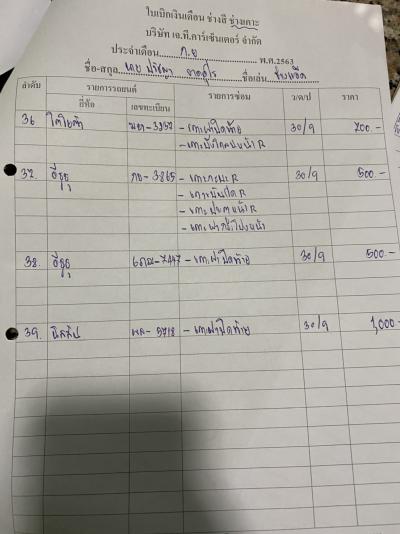 ใบเบิกเงินเดือน ช่างสี ช่างเคาะ
บริษัท เจ.ที.คาร์เซ็นเตอร์ จำกัด
ประจำเดือน ก.ย พ.ศ.2563
ชื่อ-สกุล นาย ปรัชญา ชื่อเล่น
ลำดับ รายการรถยนต์ รายการซ่อม ว/ด/ป ราคา
ยี่ห้อ เลขทะเบียน
36 โตโยต้า -3957 - เคาะฝาปิดท้าย 30/9 700.-
หน้า R
37. อีซูซุ กง-3865 - เคาะ R 30/9 500.-
- เคาะบันได R
- เคาะ หน้า R
- เคาะฝากระโปรงหน้า
38. อีซูซุ -7447 - เคาะฝาปิดท้าย 30/9 500.-
39. นิสสัน -5718 - เคาะฝาปิดท้าย 30/9 1,000.-